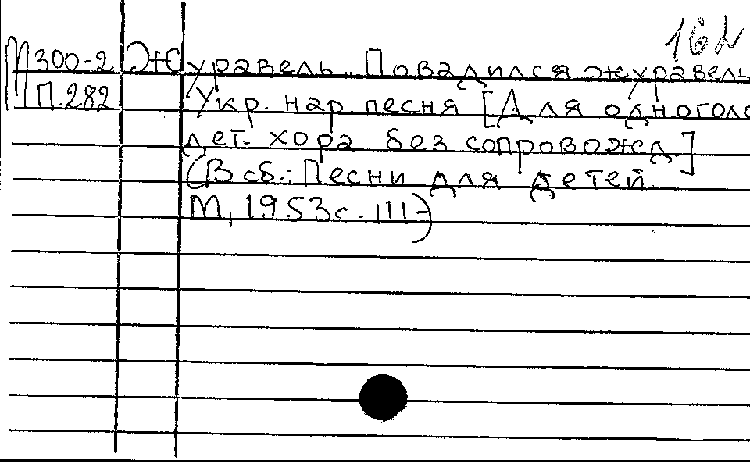 16
М300-2 Журавель. Повадился журавель
П.282 Укр. нар песня [Для одноголо
дет. хора без сопровожд]
(В сб.: Песни для детей.
М, 1953 с. 111)